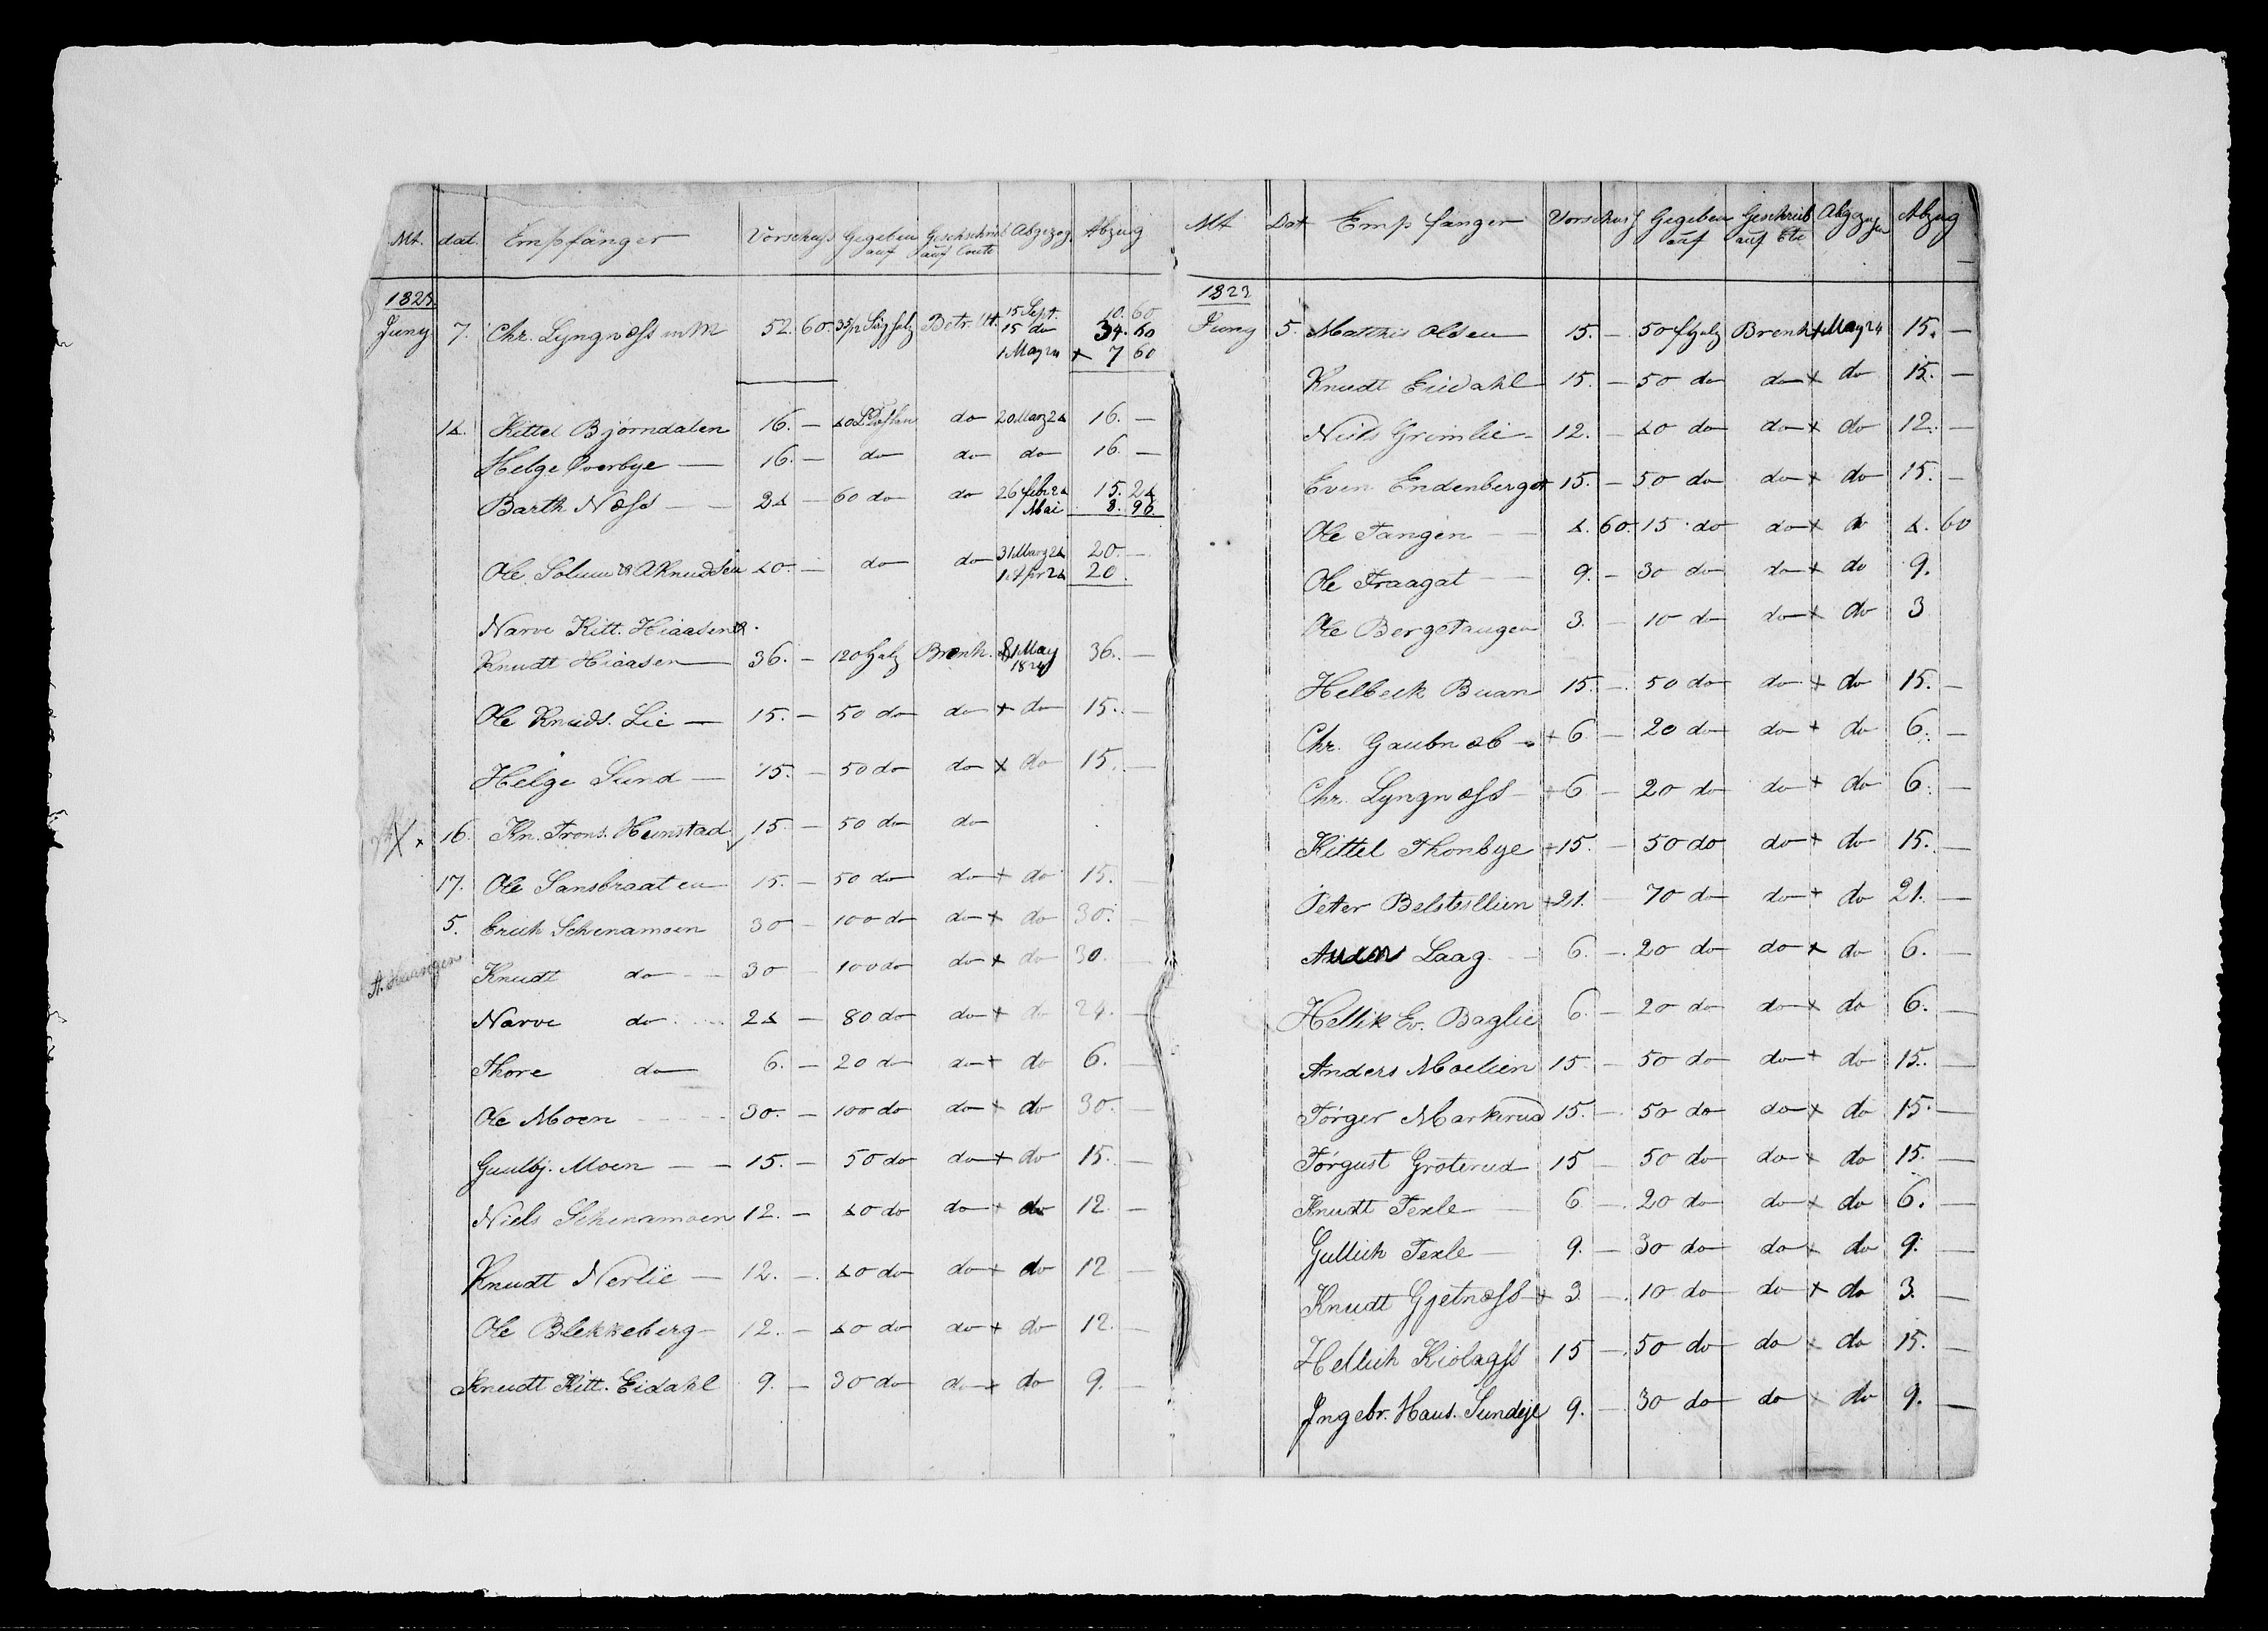 Mt. dat. Empfänger Vorschuss Gegeben auf Geschrieb auf Conto Abgezog. Abzug
1823
Juny 7. Chr. Lyngnæss m M 52. 60. 35/12 Betr. Ut. 15 Sept. 10. 60
15 do 34. 60
1 May 24 + 7 60
14. Kittel Bjørndalen 16. — 40 do 20 Marz 24 16. —
Helge Overbye — 16. — do do do 16. —
Barth Næss — — 24 — 60 do do 26 febr 24 15. 24
1 Mai 8. 96.
Ole Solum & A Knudsen 40. — do do 31 Marz 24 20. —
1 Apr 24 20.
Narve Kitt. Hiaasen &.
Knudt Hiaasen — 36. — 120 holz Brenh. 1 May 1824 36. —
Ole Knuds. Lie — 15. — 50 do do + do 15. —
Helge Lund — 15. — 50 do do + do 15. —
16. Kn. Trons. Hunstad 15. — 50 do do
17. Ole Sansbraaten 15. — 50 do do + do 15. —
5. Erich Schenamoen 30 — 100 do do + do 30. —
A. Haangen
Knudt do — 30 — 100 do do + do 30. —
Narve do 24 — 80 do do + do 24. —
Thore do 6. — 20 do do + do 6. —
Ole Moen 30. — 100 do do + do 30. —
Guulbj. Moen — — 15. — 50 do do + do 15. —
Niels Schenamoen 12. — 40 do do + do 12 —
Knudt Nerlie — 12. — 40 do do + do 12 —
Ole Blekkeberg — 12. — 40 do do + do 12. —
Knudt Kitt. Eidahl 9. — 30 do do + do 9. —
Mt Dat Empfanger Vorschuss Gegeben auf Geschrieb auf Cto Abgezogen Abzug
1823
Juny 5. Matthis Olsen 15. — 50 fholz Brenh + 1 May 24 15. —
Knudt Eidahl 15. — 50 do do + do 15. —
Niels Grimlie 12. — 40 do do + do 12. —
Even Endenberget 15. — 50 do do + do 15. —
Ole Tangen — 4. 60. 15 do do + do 4. 60
Ole Fraagat — 9. — 30 do do + do 9.
Ole Bergstangen 3. — 10 do do + do 3
Helbeck Buan 15. — 50 do do + do 15. —
Chr. — + 6 — 20 do do + do 6. —
Chr. Lyngnæss — + 6 — 20 do do + do 6. —
Kittel Thonbye + 15. — 50 do do + do 15. —
Peter + 21. — 70 do do + do 21. —
Laag — 6. — 20 do do + do 6. —
Hellik Ev. Baglie 6. — 20 do do + do 6. —
Anders Moelien 15 — 50 do do + do 15. —
Tørger Markerud 15. — 50 do do + do 15. —
Tørgust Groterud 15 — 50 do do + do 15. —
Knudt Texle — 6 — 20 do do + do 6. —
Gullich Texle — 9. — 30 do do + do 9. —
Knudt Gjetnæss + 3 — 10 do do + do 3. —
Hellich Kiolaass 15 — 50 do do + do 15. —
Ingebr. Hans. Sundeje 9. — 30 do do + do 9. —